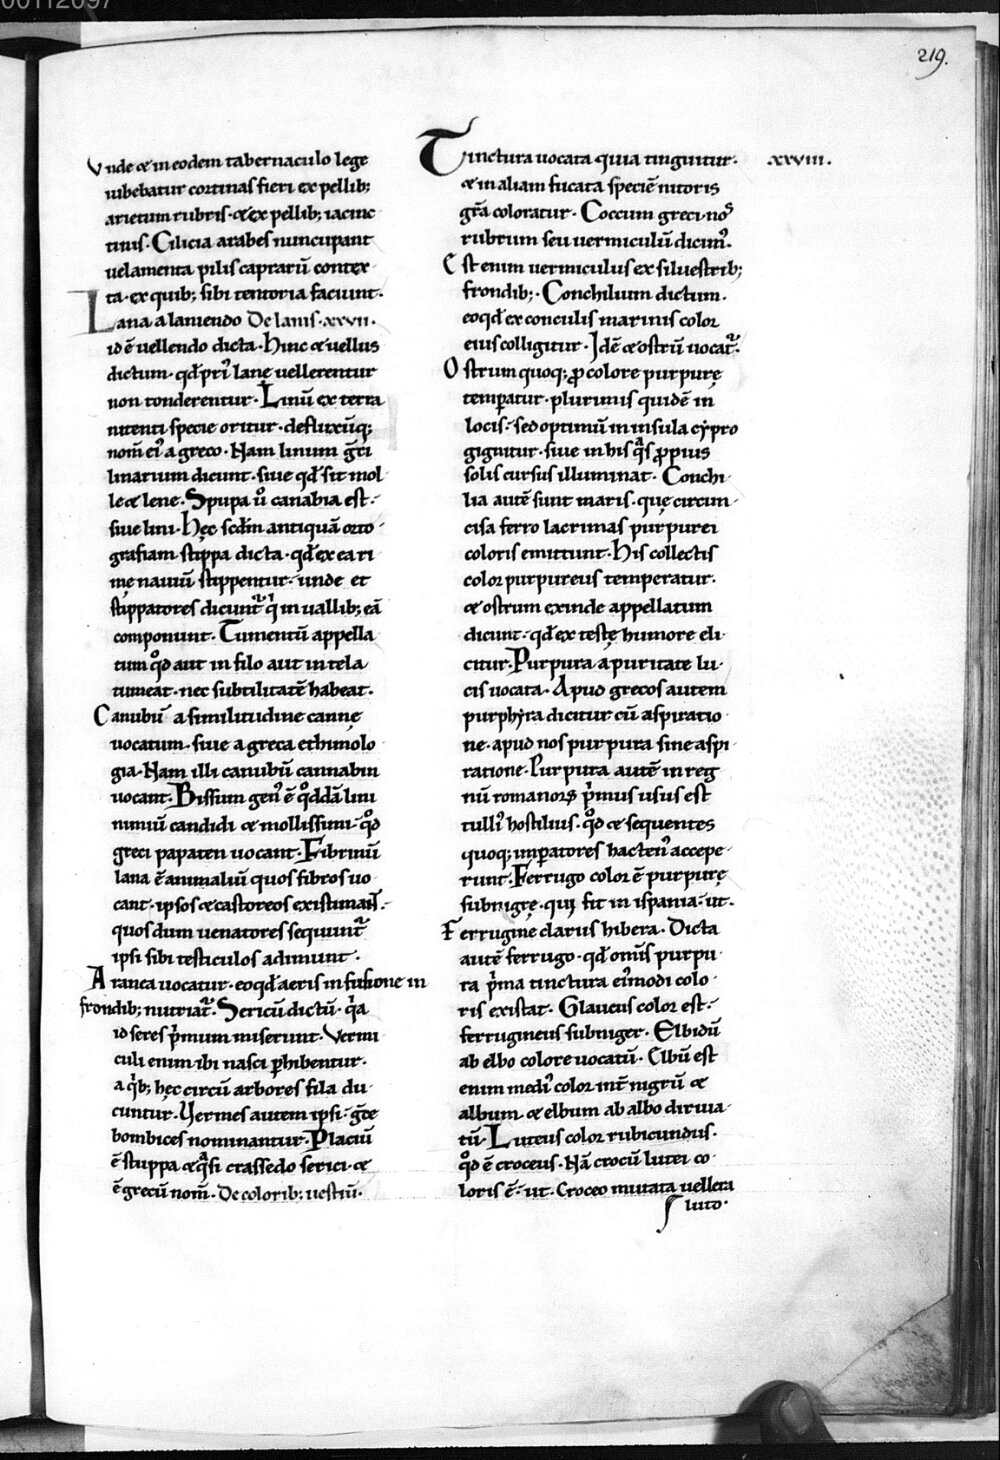 00112097
219.
Vnde & in eodem tabernaculo lege
iubebatur cortinas fieri ex pellib;
arietum rubris. & ex pellib; iacinc
tinis. Cilicia arabes nuncupant
uelamenta pilis caprarũ contex
ta. ex quib; sibi tentoria faciunt.
Lana a laniendo De lanis. xxvii.
id ẽ uellendo dicta. Hinc & uellus
dictum. qđ pri᾽ lanę uellerentur
non tonderentur. Linũ ex terra
nitenti specie oritur. defluxũq;
nom̃ ei᾽ a greco. Nam linum g̃ci
linarium dicunt. siue qđ sit mol
le & lene. Stupa ů canabia est.
siue lini. Hęc scđm antiquã orto
grafiam stippa dicta. qđ ex ea ri
mę nauiũ stippentur. unde et
stippatores dicunt᷑ qⁱ in uallib; eã
componunt. Tumentũ appella
tum qᵒd aut in filo aut in tela
tumeat. nec subtilitatẽ habeat.
Canubũ a similitudine cannę
uocatum. siue a greca ethimolo
gia. Nam illi canubũ cannabin
uocant. Bissum gen᾽ ẽ qᵒddã lini
nimiũ candidi & mollissimi. qᵒd
greci papaten uocant. Fibrinũ
lana ẽ animaliũ quos fibros uo
cant. ipsos & castoreos existimant.
quos dum uenatores sequunt᷑
ipsi sibi testiculos adimunt.
Aranea uocatur. eoqđ aeris infusione in
frondib; nutriat᷑. Sericũ dictũ. qᵃ
id seres pⁱmum miserunt. Vermi
culi enim ibi nasci phibentur.
a qⁱb; hęc circũ arbores fila du
cuntur. Vermes autem ipsi. g̃ce
bombices nominantur. Placiũ
ẽ stuppa & qᵃsi crassedo serici. &
ẽ grecũ nom̃. De colorib; uestiũ.
Tinctura uocata quia tinguitur. xxviii.
& in aliam fucata speciẽ nitoris
gr̃a coloratur. Coccum greci. nos
rubrum seu uermiculũ dicim᾽.
Est enim uermiculus ex siluestrib;
frondib;. Conchilium dictum.
eoqđ ex conculis marinis color
eius colligitur. Idẽ & ostrũ uocat᷑.
Ostrum quoq; p colore purpurę
temperatur. plurimis quidẽ in
locis. sed optimũ in insula cypro
gignitur. siue in his qᵃs ppius
solis cursus illuminat. Conchi
lia autẽ sunt maris. quę circum
cisa ferro lacrimas purpurei
coloris emittunt. His collectis
color purpureus temperatur.
& ostrum exinde appellatum
dicunt. qđ ex testę humore eli
citur. Purpura a puritate lu
cis uocata. Apud grecos autem
purphyra dicitur cũ aspiratio
ne. apud nos purpura sine aspi
ratione. Purpura autẽ in reg
nũ romanorꝝ pⁱmus usus est
tulli᾽ hostilius. qᵒd & sequentes
quoq; imperatores hacten᾽ accepe
runt. Ferrugo color ẽ purpurę
subnigrę. quę fit in ispania. ut.
Ferrugine clarus hibera. Dicta
autẽ ferrugo. qđ om̃is purpu
ra pⁱma tinctura ei᾽modi colo
ris existat. Glaucus color est.
ferrugineus subniger. Elbidũ
ab elbo colore uocatũ. Elbũ est
enim medi᾽ color int̃ nigrũ &
album. & elbum ab albo diriua
tũ. Luteus color rubicundus.
qᵒd ẽ croceus. Nã crocũ lutei co
loris ẽ. ut. Croceo mutata uellera
luto.